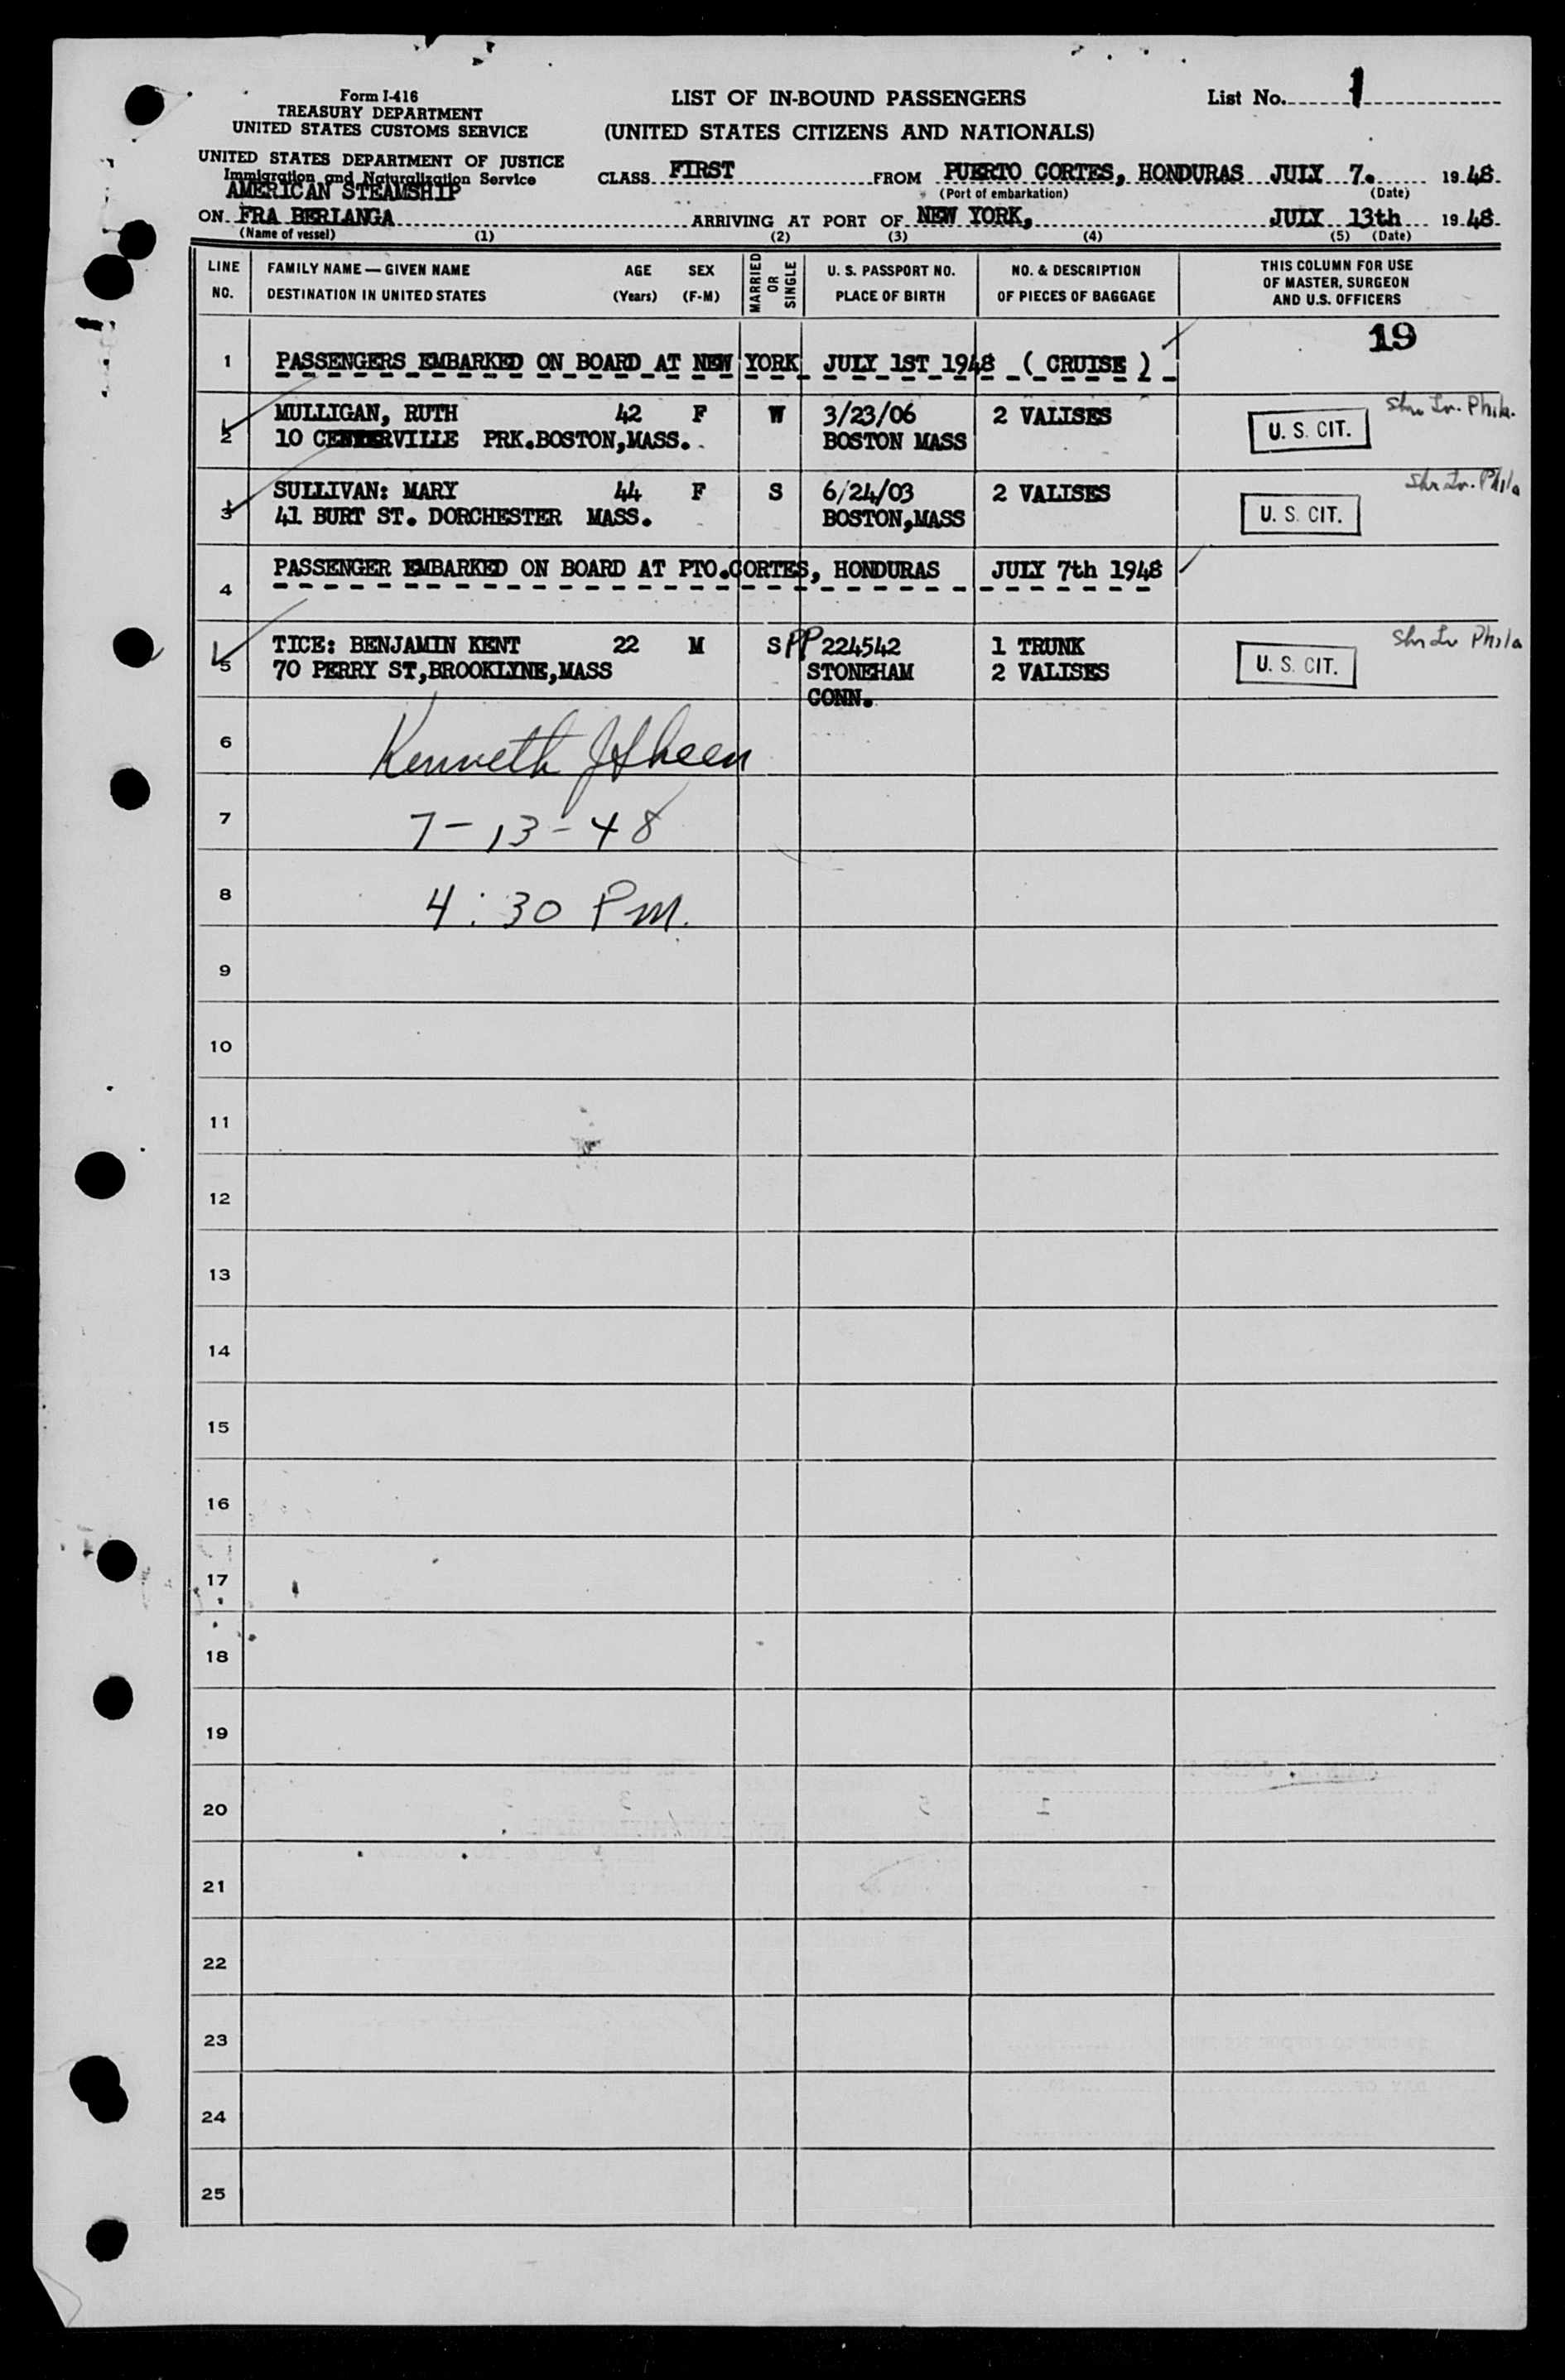 Form I-416
TREASURY DEPARTMENT
UNITED STATES CUSTOMS SERVICE
UNITED STATES DEPARTMENT OF JUSTICE
Immigration and Naturalization Service
LIST OF IN-BOUND PASSENGERS
(UNITED STATES CITIZENS AND NATIONALS)
List No. 1
AMERICAN STEAMSHIP
CLASS FIRST FROM PUERTO CORTES, HONDURAS JULY 7. 1948
(Port of embarkation) (Date)
ON FRA BERLANGA ARRIVING AT PORT OF NEW YORK, JULY 13th 1948
(Name of vessel) (1) (2) (3) (4) (5) (Date)
LINE NO.
FAMILY NAME — GIVEN NAME
DESTINATION IN UNITED STATES
AGE (Years)
SEX (F-M)
MARRIED OR SINGLE
U. S. PASSPORT NO.
PLACE OF BIRTH
NO. & DESCRIPTION
OF PIECES OF BAGGAGE
THIS COLUMN FOR USE
OF MASTER, SURGEON
AND U.S. OFFICERS
19
1 PASSENGERS EMBARKED ON BOARD AT NEW YORK JULY 1ST 1948 ( CRUISE )
2 MULLIGAN, RUTH 42 F W 3/23/06 2 VALISES U. S. CIT. Phila.
10 CENTERVILLE PRK.BOSTON,MASS. BOSTON MASS
3 SULLIVAN: MARY 44 F S 6/24/03 2 VALISES U. S. CIT. Phila
41 BURT ST. DORCHESTER MASS. BOSTON,MASS
4 PASSENGER EMBARKED ON BOARD AT PTO.CORTES, HONDURAS JULY 7th 1948
5 TICE: BENJAMIN KENT 22 M S PP 224542 1 TRUNK U. S. CIT. Phila
70 PERRY ST,BROOKLYNE,MASS STONEHAM 2 VALISES
CONN.
6 Kenneth J Sheen
7 7-13-48
8 4:30 PM.
9
10
11
12
13
14
15
16
17
18
19
20
21
22
23
24
25